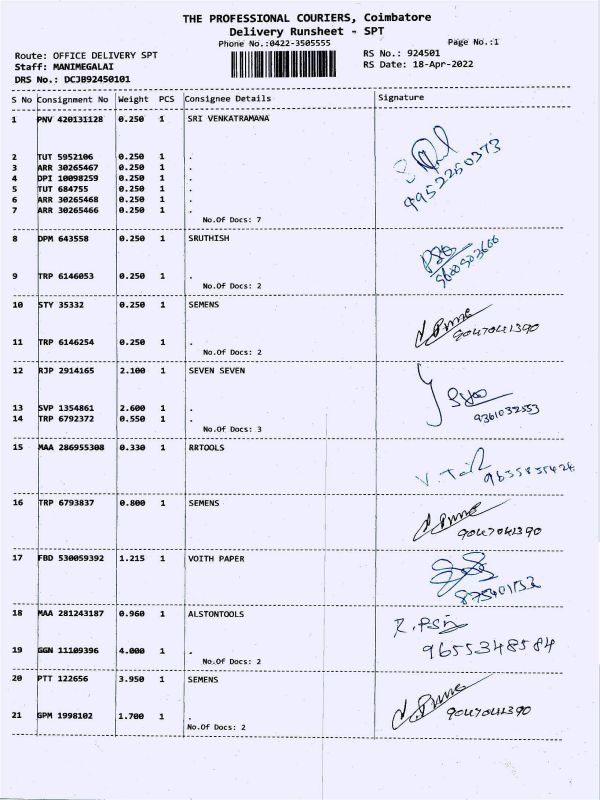 THE PROFESSIONAL COURIERS, Coimbatore
Delivery Runsheet - SPT
Phone No.:0422-3505555 Page No.:1
Route: OFFICE DELIVERY SPT RS No.: 924501
Staff: MANIMEGALAI RS Date: 18-Apr-2022
DRS No.: DCJB92450101
S No Consignment No Weight PCS Consignee Details Signature
1 PNV 420131128 0.250 1 SRI VENKATRAMANA
2 TUT 5952106 0.250 1 .
3 ARR 30265467 0.250 1 .
4 DPI 10098259 0.250 1 .
5 TUT 684755 0.250 1 .
6 ARR 30265468 0.250 1 .
7 ARR 30265466 0.250 1 .
9952260373
No.Of Docs: 7
8 DPM 643558 0.250 1 SRUTHISH
9 TRP 6146053 0.250 1 .
No.Of Docs: 2
10 STY 35332 0.250 1 SEMENS
9047041390
11 TRP 6146254 0.250 1 .
No.Of Docs: 2
12 RJP 2914165 2.100 1 SEVEN SEVEN
13 SVP 1354861 2.600 1 .
9361032553
14 TRP 6792372 0.550 1 .
No.Of Docs: 3
15 MAA 286955308 0.330 1 RRTOOLS
16 TRP 6793837 0.800 1 SEMENS
9047041390
17 FBD 530059392 1.215 1 VOITH PAPER
18 MAA 281243187 0.960 1 ALSTONTOOLS
19 GGN 11109396 4.000 1 .
9655348584
No.Of Docs: 2
20 PTT 122656 3.950 1 SEMENS
21 GPM 1998102 1.700 1 .
9047041390
No.Of Docs: 2